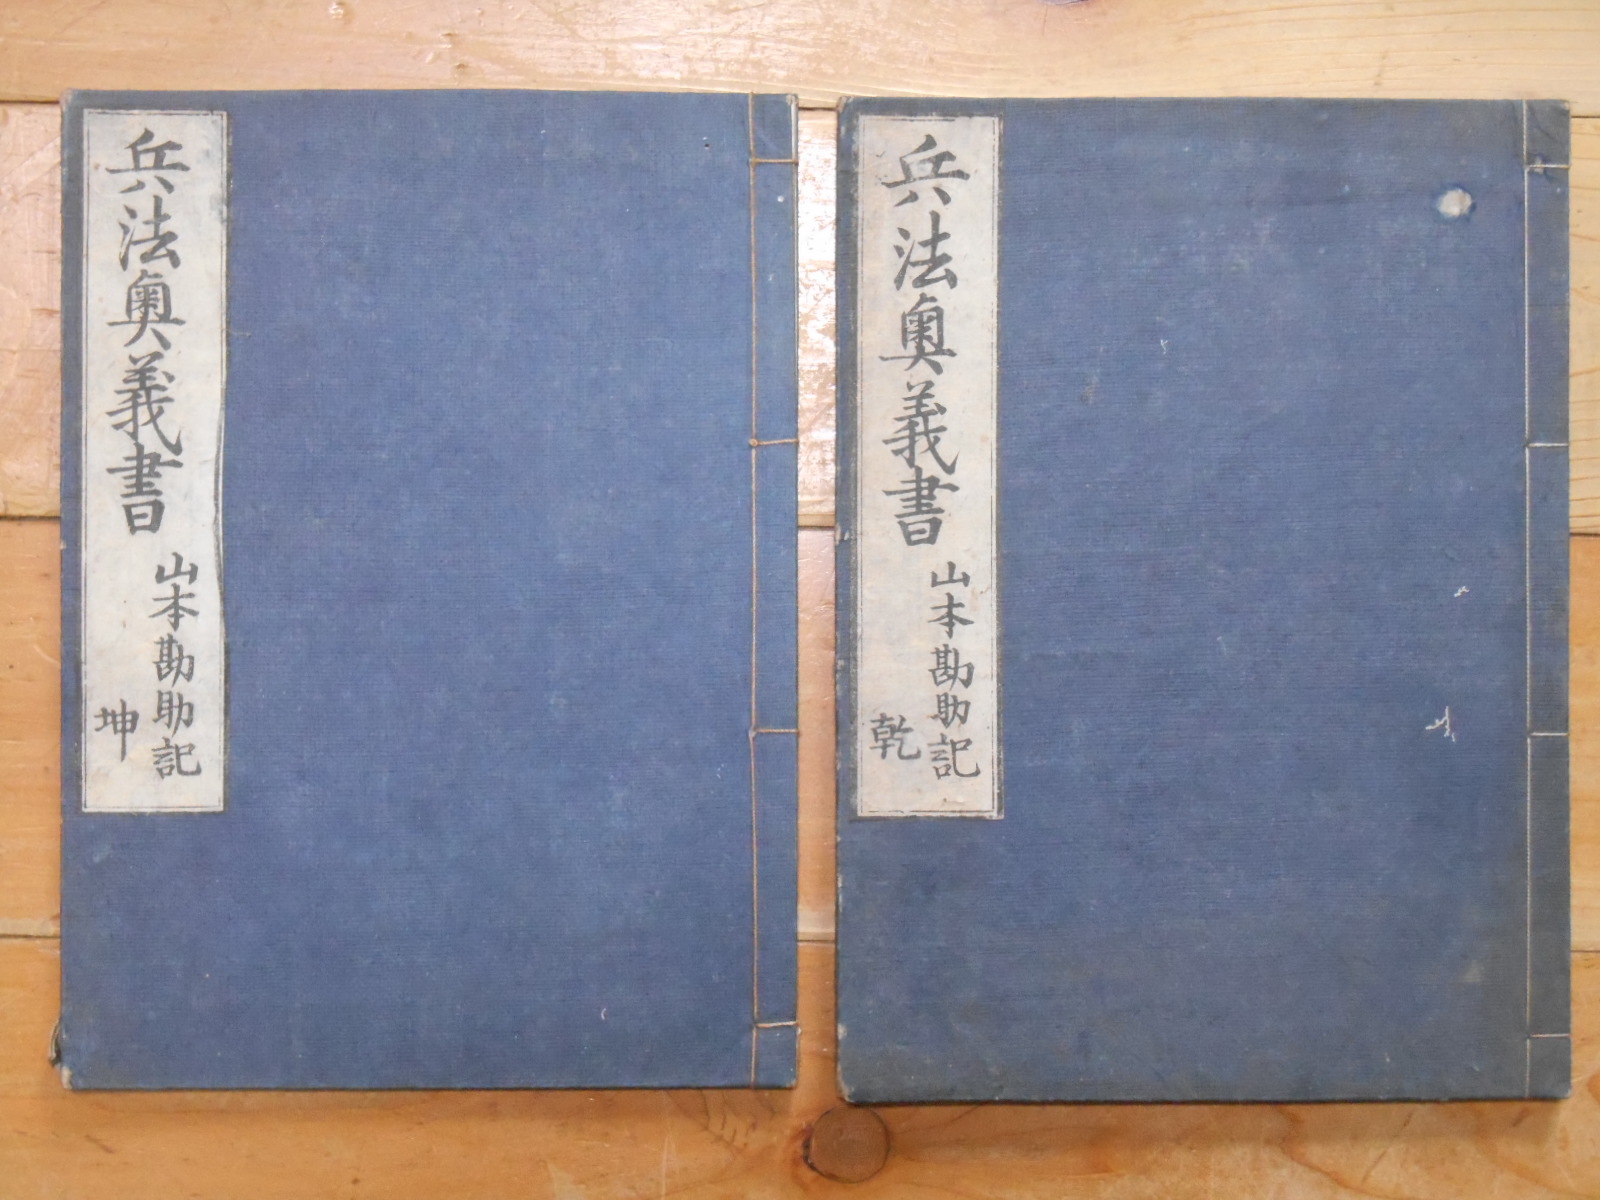 兵法奥義書
山本勘助記
乾
兵法奥義書
山本勘助記
坤